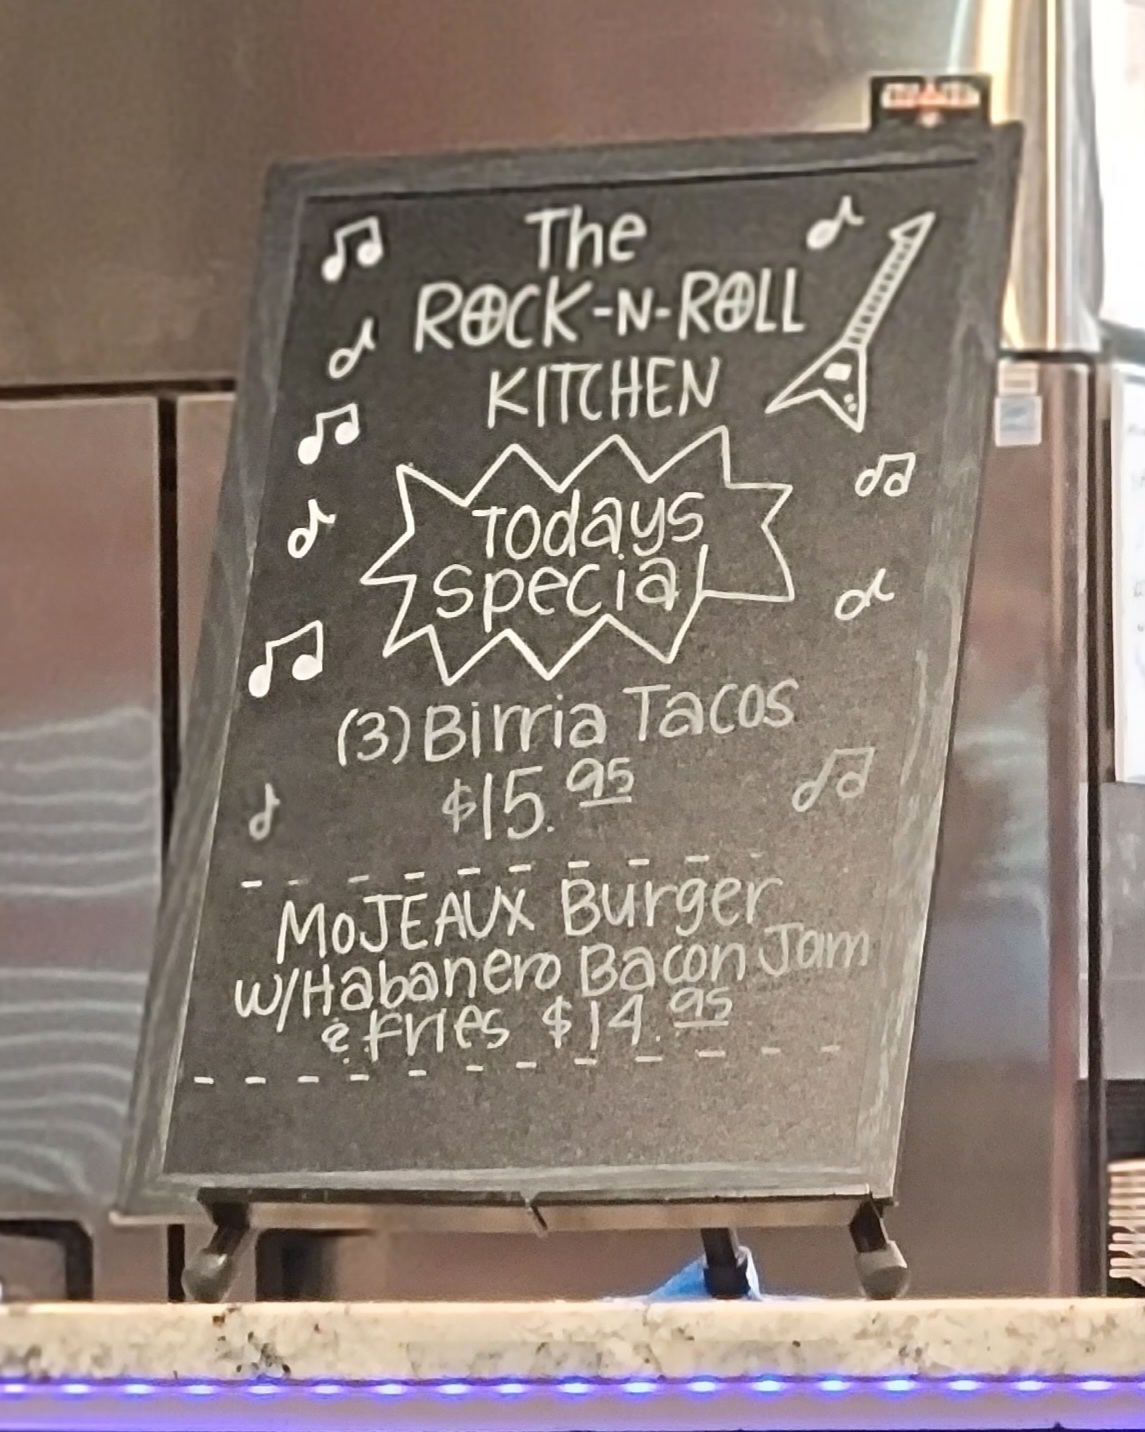 The
ROCK-N-ROLL
KITCHEN
Todays
special
(3) Birria Tacos
$15.95
MoJEAUX Burger
w/Habanero Bacon Jam
& fries $14.95